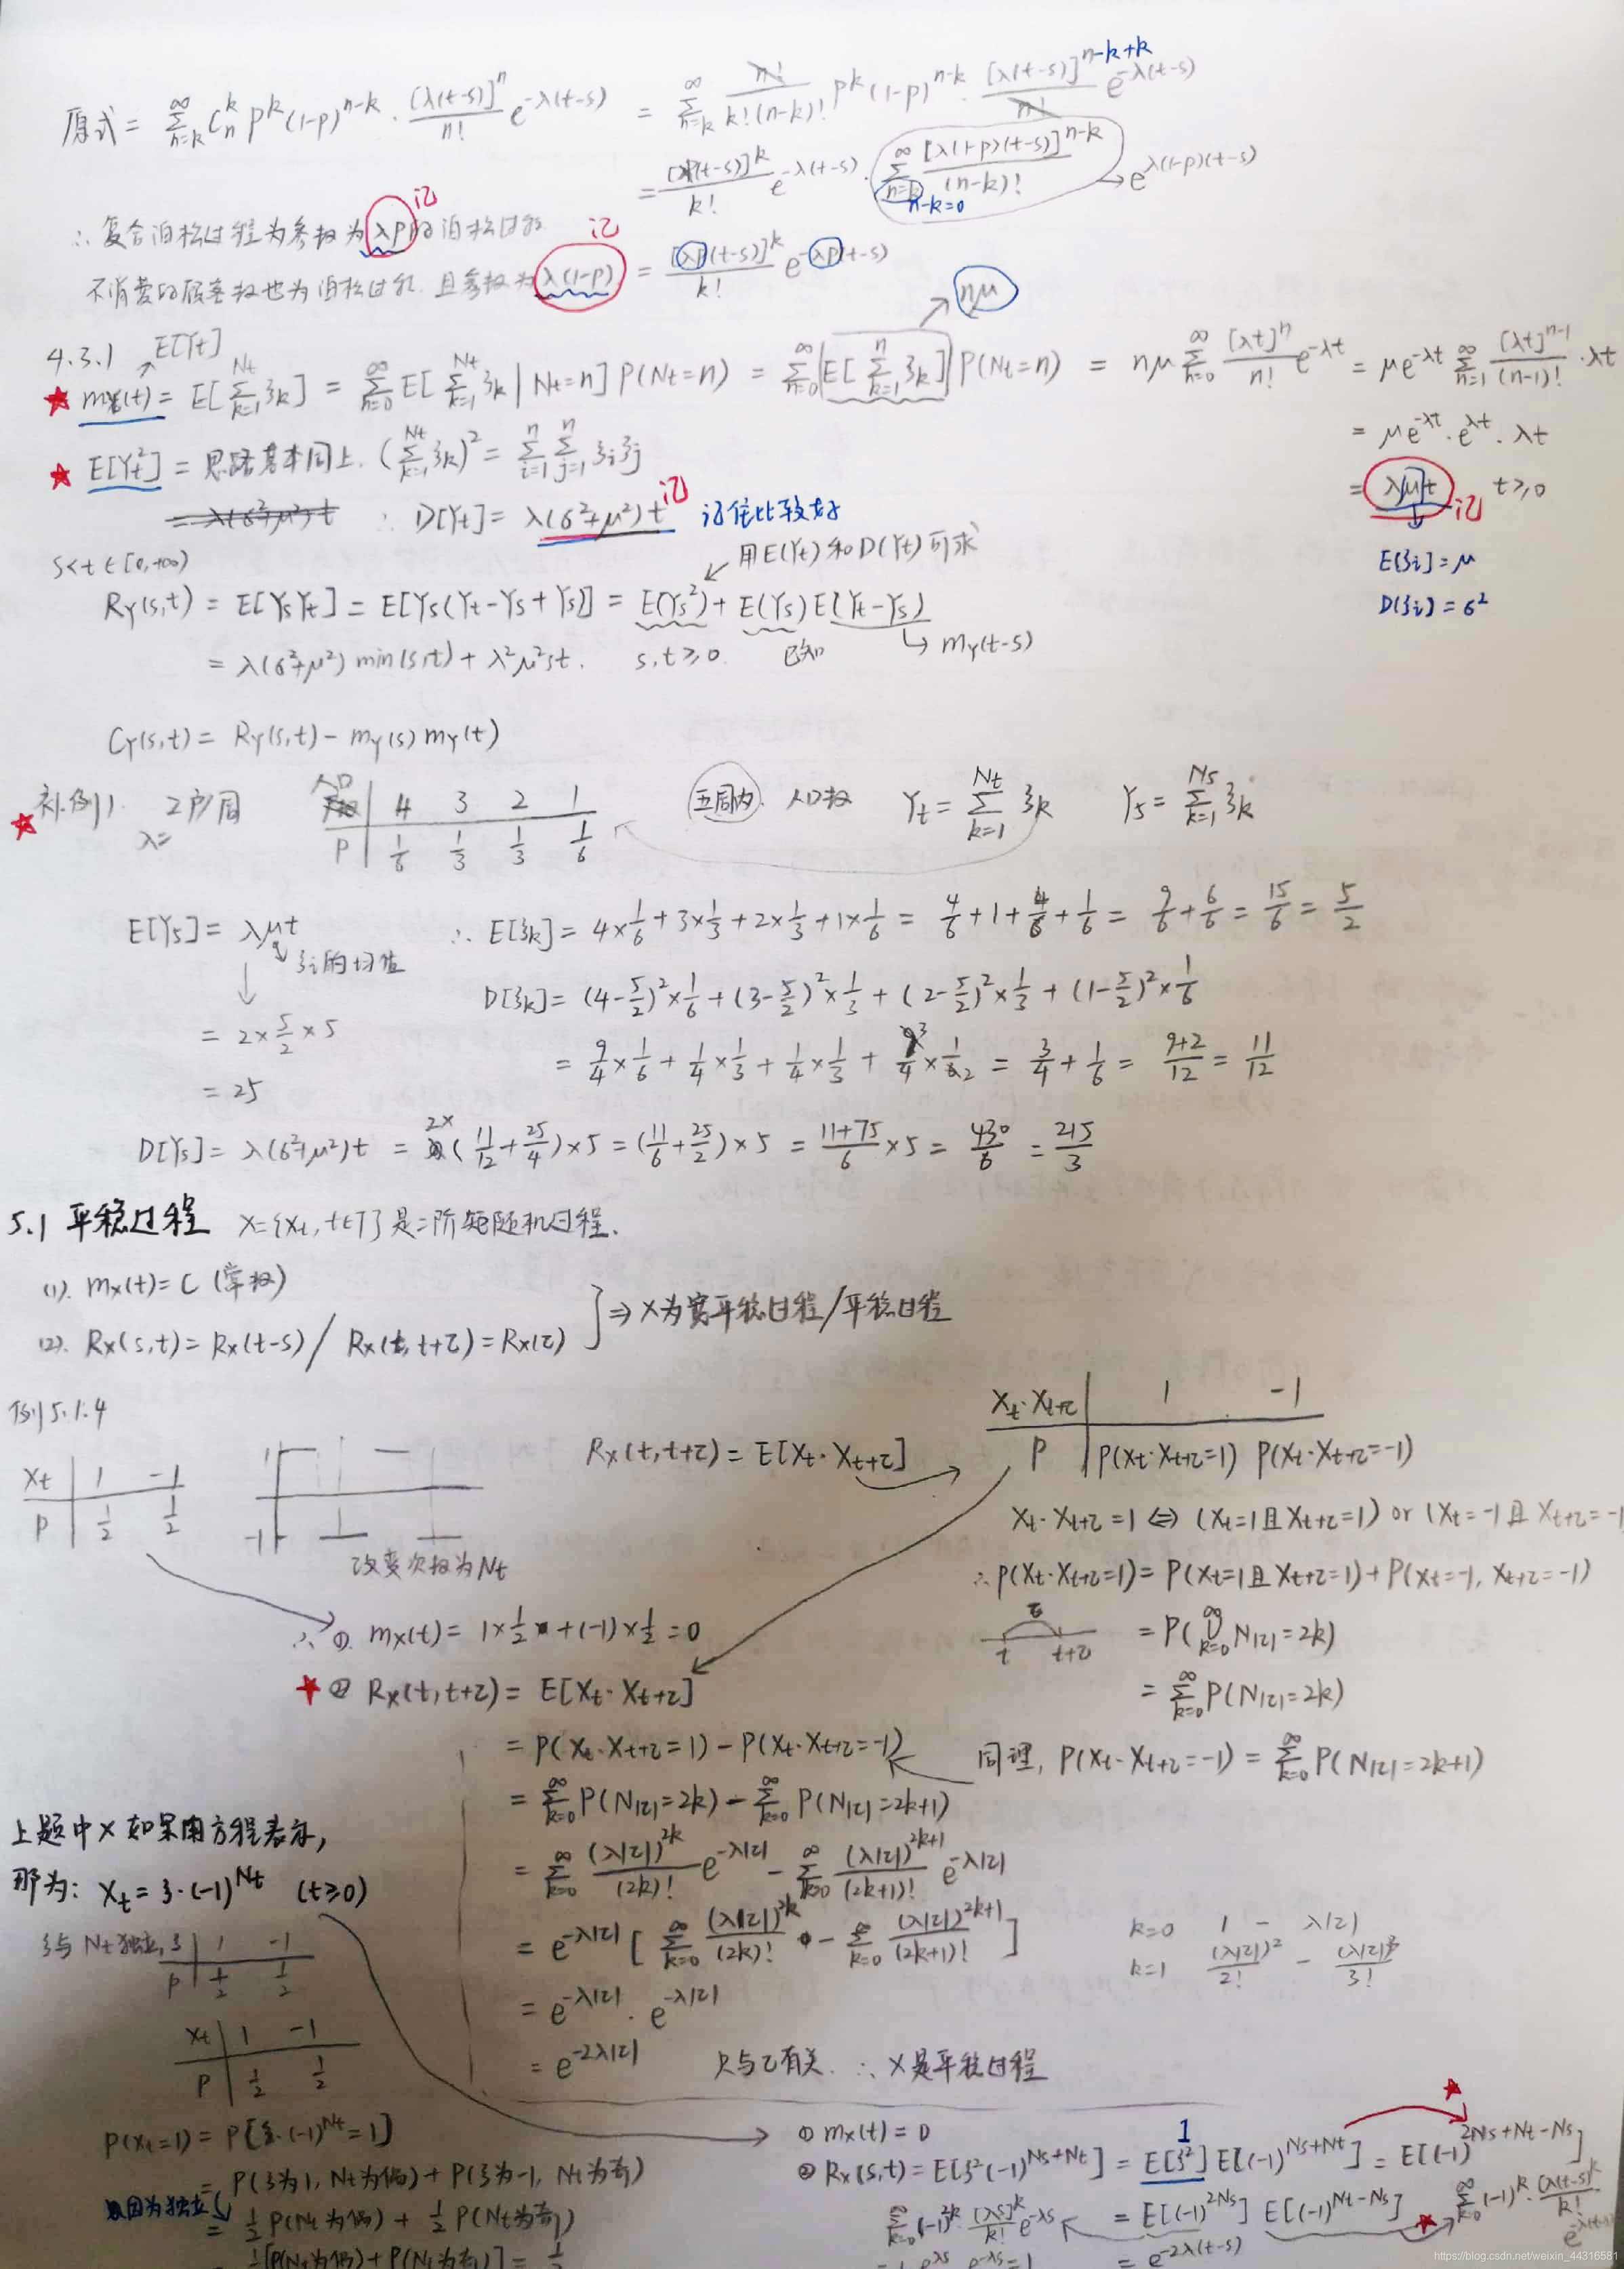 原式 = ∑_{n=k}^{∞} C_n^k p^k (1-p)^{n-k} · [λ(t-s)]^n / n! e^{-λ(t-s)} = ∑_{n=k}^{∞} n! / k!(n-k)! p^k (1-p)^{n-k} · [λ(t-s)]^{n-k+k} / n! e^{-λ(t-s)}
= [λp(t-s)]^k / k! e^{-λ(t-s)} · ∑_{n=k}^{∞} [λ(1-p)(t-s)]^{n-k} / (n-k)! → e^{λ(1-p)(t-s)}
n-k=0
∴ 复合泊松过程为参数为 λp 的泊松过程 记
不消费的顾客数也为泊松过程 且参数为 λ(1-p) 记 = [λp(t-s)]^k / k! e^{-λp(t-s)}
nμ
4.3.1 E[Yt]
★ mY(t) = E[∑_{k=1}^{Nt} ξk] = ∑_{n=0}^{∞} E[∑_{k=1}^{Nt} ξk | Nt=n] P(Nt=n) = ∑_{n=0}^{∞} E[∑_{k=1}^{n} ξk] P(Nt=n) = nμ ∑_{n=0}^{∞} [λt]^n / n! e^{-λt} = μe^{-λt} ∑_{n=1}^{∞} [λt]^{n-1} / (n-1)! · λt
= μe^{-λt} · e^{λt} · λt
★ E[Yt²] = 思路基本同上. (∑_{k=1}^{Nt} ξk)² = ∑_{i=1}^{n} ∑_{j=1}^{n} ξiξj
= λμt t≥0 记
= λ(σ²+μ²)t ∴ D[Yt] = λ(σ²+μ²)t 记 记住比较好
E[ξi] = μ
D(ξi) = σ²
s<t∈[0,+∞) 用E(Yt)和D(Yt)可求
RY(s,t) = E[YsYt] = E[Ys(Yt-Ys+Ys)] = E(Ys²) + E(Ys)E(Yt-Ys)
已知 ↳ mY(t-s)
= λ(σ²+μ²) min(s,t) + λ²μ²st. s,t≥0
CY(s,t) = RY(s,t) - mY(s) mY(t)
★ 补例1. 2户/周 人口 4 3 2 1 五周内. 人口数 Yt = ∑_{k=1}^{Nt} ξk Y5 = ∑_{k=1}^{N5} ξk
λ= P 1/6 1/3 1/3 1/6
E[Y5] = λμt ∴ E[ξk] = 4×1/6 + 3×1/3 + 2×1/3 + 1×1/6 = 4/6 + 1 + 4/6 + 1/6 = 9/6 + 6/6 = 15/6 = 5/2
ξi的均值
D[ξk] = (4-5/2)²×1/6 + (3-5/2)²×1/3 + (2-5/2)²×1/3 + (1-5/2)²×1/6
= 2×5/2×5
= 9/4×1/6 + 1/4×1/3 + 1/4×1/3 + 3/4×1/2 = 3/4 + 1/6 = 9+2/12 = 11/12
= 25
D[Y5] = λ(σ²+μ²)t = 2×(11/12 + 25/4)×5 = (11/6 + 25/2)×5 = 11+75/6 ×5 = 430/6 = 215/3
5.1 平稳过程 X={Xt, t∈T}是二阶矩随机过程.
(1). mX(t) = C (常数)
⇒ X为宽平稳过程/平稳过程
(2). RX(s,t) = RX(t-s) / RX(t, t+τ) = RX(τ)
例5.1.4
Xt 1 -1
P 1/2 1/2
1
-1
改变次数为Nt
RX(t,t+τ) = E[Xt·Xt+τ]
Xt·Xt+τ 1 -1
P P(Xt·Xt+τ=1) P(Xt·Xt+τ=-1)
Xt·Xt+τ=1 ⇔ (Xt=1且Xt+τ=1) or (Xt=-1且Xt+τ=-1
∴ P(Xt·Xt+τ=1) = P(Xt=1且Xt+τ=1) + P(Xt=-1, Xt+τ=-1)
τ
t t+τ
= P(⋃_{k=0}^{∞} N|τ|=2k)
= ∑_{k=0}^{∞} P(N|τ|=2k)
∴ ①. mX(t) = 1×1/2 + (-1)×1/2 = 0
★ ② RX(t,t+τ) = E[Xt·Xt+τ]
= P(Xt·Xt+τ=1) - P(Xt·Xt+τ=-1) 同理, P(Xt·Xt+τ=-1) = ∑_{k=0}^{∞} P(N|τ|=2k+1)
= ∑_{k=0}^{∞} P(N|τ|=2k) - ∑_{k=0}^{∞} P(N|τ|=2k+1)
= ∑_{k=0}^{∞} (λ|τ|)^{2k} / (2k)! e^{-λ|τ|} - ∑_{k=0}^{∞} (λ|τ|)^{2k+1} / (2k+1)! e^{-λ|τ|}
= e^{-λ|τ|} [∑_{k=0}^{∞} (λ|τ|)^{2k} / (2k)! - ∑_{k=0}^{∞} (λ|τ|)^{2k+1} / (2k+1)!]
k=0 1 - λ|τ|
k=1 (λ|τ|)² / 2! - (λ|τ|)³ / 3!
= e^{-λ|τ|} · e^{-λ|τ|}
= e^{-2λ|τ|} 只与τ有关. ∴ X是平稳过程
上题中X如果用方程表示,
那为: Xt = ξ·(-1)^{Nt} (t≥0)
ξ与Nt独立, ξ 1 -1
P 1/2 1/2
Xt 1 -1
P 1/2 1/2
P(Xt=1) = P[ξ·(-1)^{Nt}=1]
= P(ξ为1, Nt为偶) + P(ξ为-1, Nt为奇)
因为独立
= 1/2 P(Nt为偶) + 1/2 P(Nt为奇)
= 1/2[P(Nt为偶) + P(Nt为奇)] = 1/2
① mX(t) = 0
1
② RX(s,t) = E[ξ²(-1)^{Ns+Nt}] = E[ξ²] E[(-1)^{Ns+Nt}] = E[(-1)^{2Ns+Nt-Ns}]
∑_{k=0}^{∞} (-1)^{2k} · [λs]^k / k! e^{-λs} = E[(-1)^{2Ns}] E[(-1)^{Nt-Ns}] ∑_{k=0}^{∞} (-1)^k · (λ(t-s))^k / k! e^{-λ(t-s)}
= e^{-2λ(t-s)}
https://blog.csdn.net/weixin_44316581